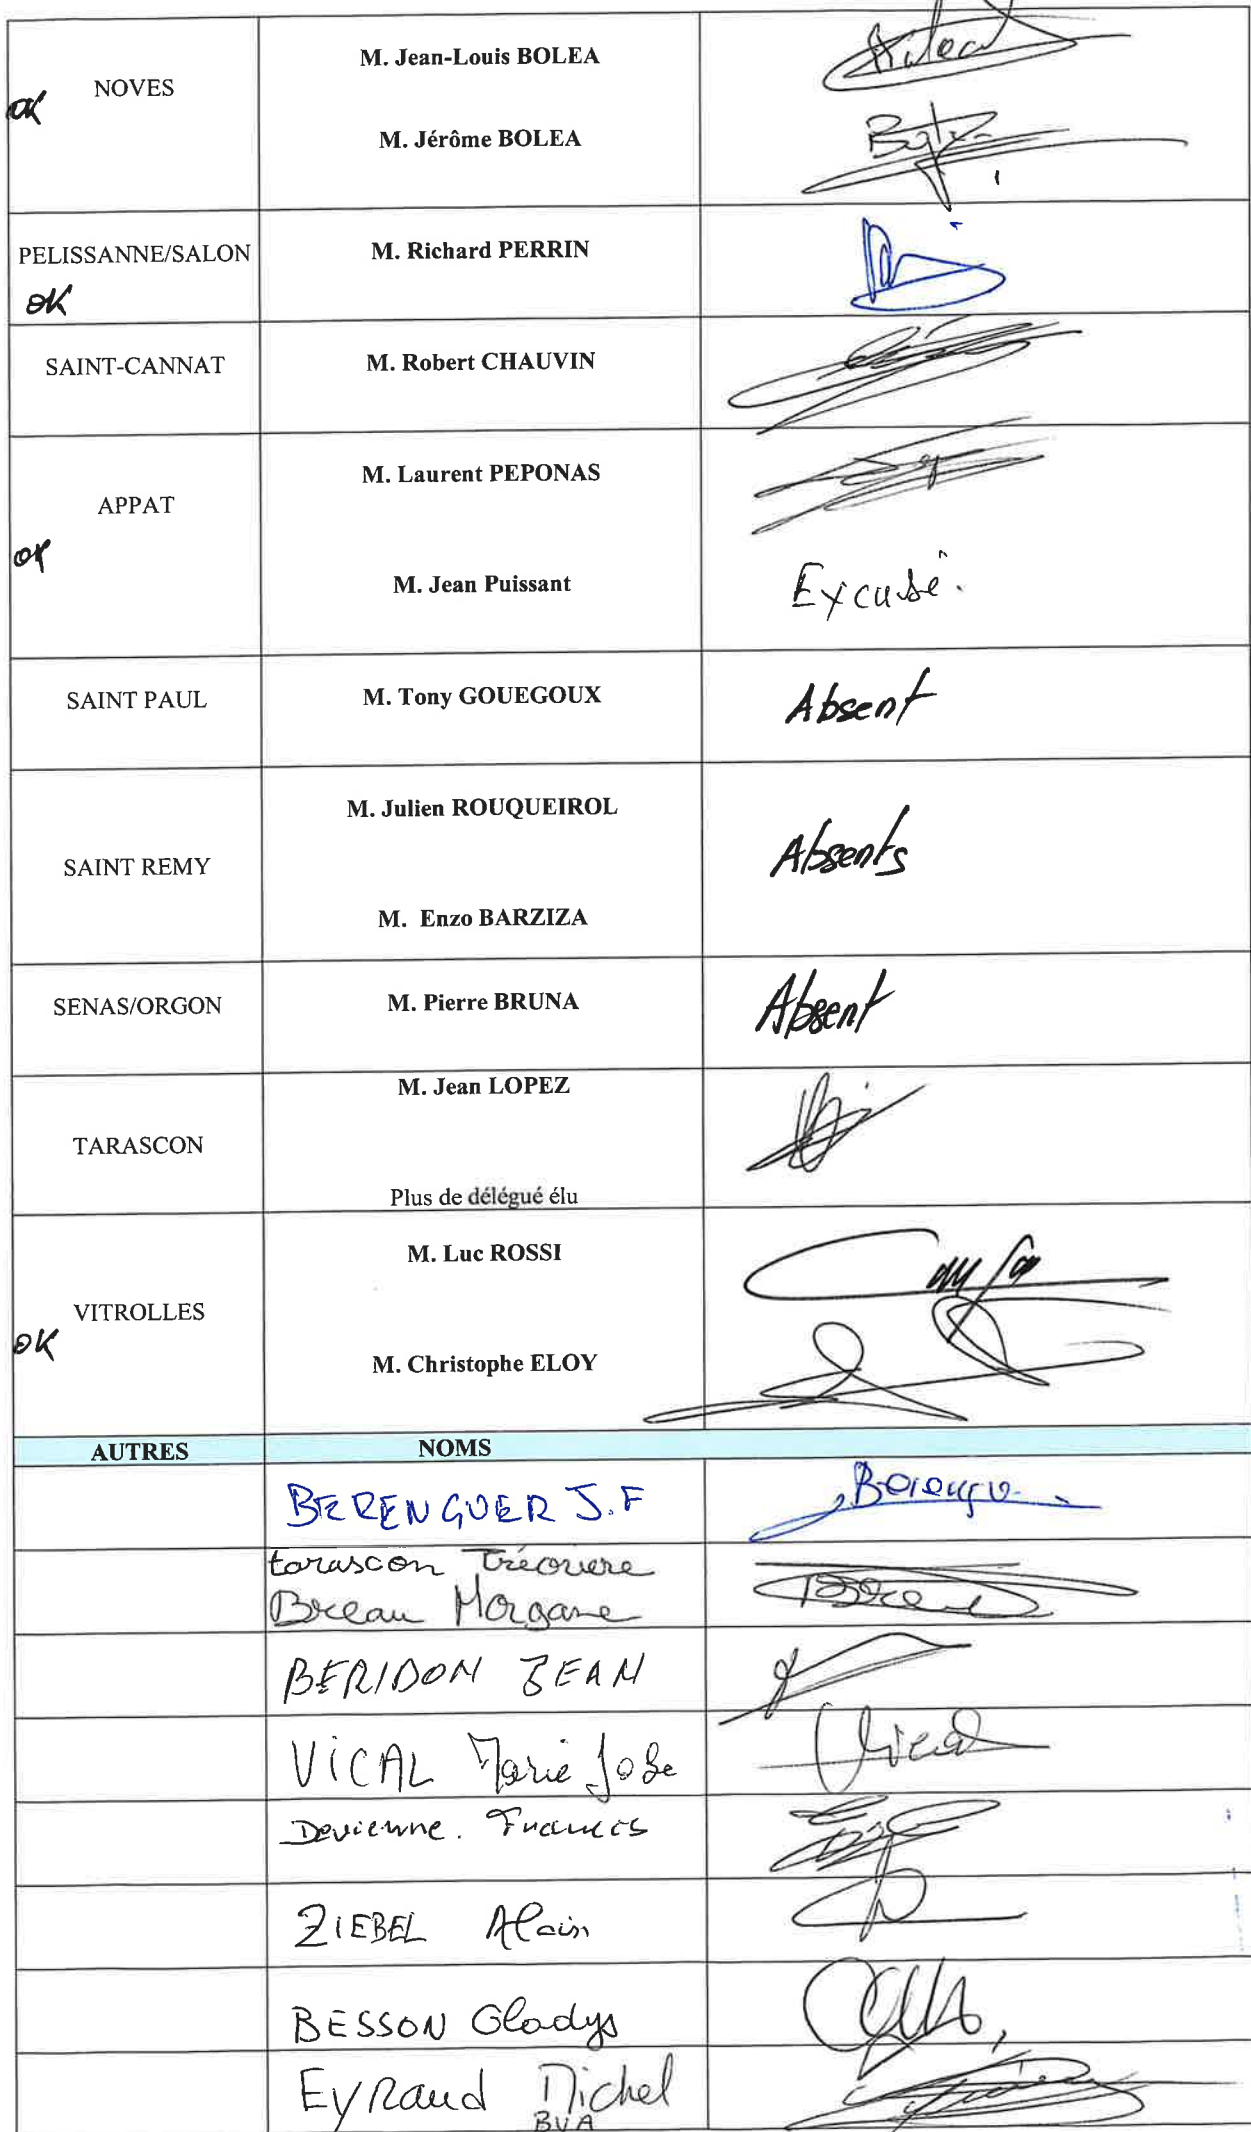 NOVES
OK
M. Jean-Louis BOLEA
M. Jérôme BOLEA
PELISSANNE/SALON
OK
M. Richard PERRIN
SAINT-CANNAT
M. Robert CHAUVIN
APPAT
OK
M. Laurent PEPONAS
M. Jean Puissant
Excusé.
SAINT PAUL
M. Tony GOUEGOUX
Absent
SAINT REMY
M. Julien ROUQUEIROL
M. Enzo BARZIZA
Absents
SENAS/ORGON
M. Pierre BRUNA
Absent
TARASCON
M. Jean LOPEZ
Plus de délégué élu
VITROLLES
OK
M. Luc ROSSI
M. Christophe ELOY
AUTRES NOMS
BERENGUER J.F
tarascon
Breau Morgane
BERIDON JEAN
VICAL Marie José
Devienne. Francis
ZIEBEL Alain
BESSON Gladys
EyRaud Michel
BVA